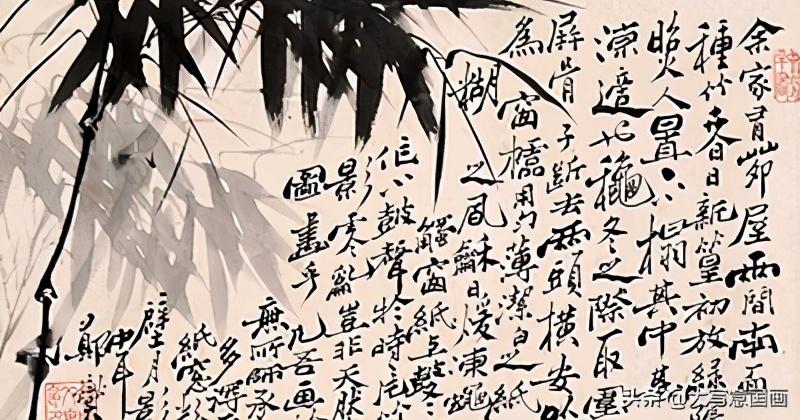 余家有茆屋兩間南面
種竹夏日新篁初放綠
照人置一小榻其中甚
涼適也穐冬之際取圍
屏骨子斷去兩頭橫安以
為窗櫺用勻薄潔白之紙
糊之風龢日煖凍蠅
觸窗紙上鼕
作小鼓聲於時一片竹
影零亂豈非天然
圖畫乎凡吾畫
無所師承
多得
紙窗粉
壁月影
中耳
鄭燮
头条 @大写意国画